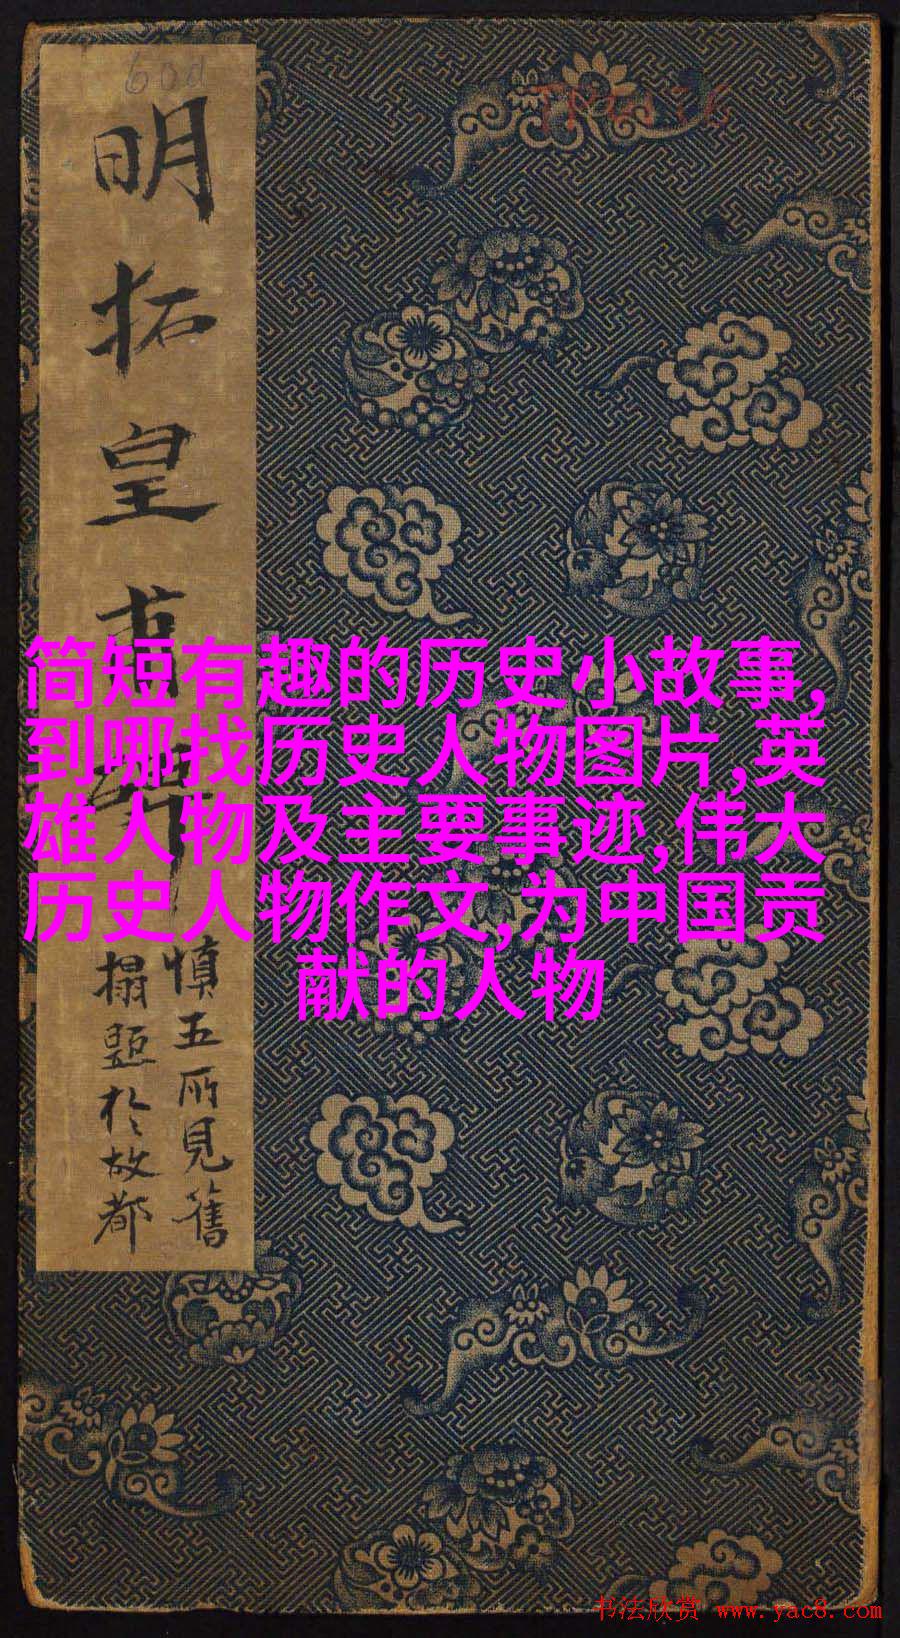 明拓皇
慎五所見舊
搨題於故都
简短有趣的历史小故事,
到哪找历史人物图片,英
雄人物及主要事迹,伟大
历史人物作文,为中国贡
献的人物
书法欣赏 www.yac8.com